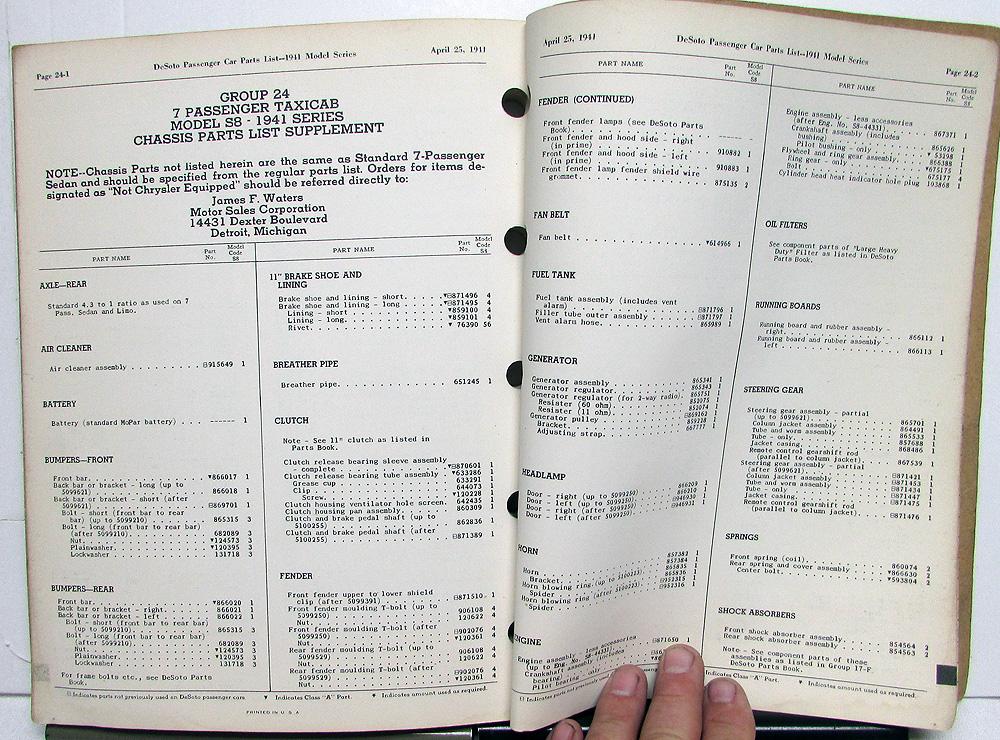 Page 24-1
DeSoto Passenger Car Parts List--1941 Model Series
April 25, 1941
GROUP 24
7 PASSENGER TAXICAB
MODEL S8 - 1941 SERIES
CHASSIS PARTS LIST SUPPLEMENT
NOTE--Chassis Parts not listed herein are the same as Standard 7-Passenger
Sedan and should be specified from the regular parts list. Orders for items de-
signated as "Not Chrysler Equipped" should be referred directly to:
James F. Waters
Motor Sales Corporation
14431 Dexter Boulevard
Detroit, Michigan
PART NAME
Part No.
Model Code S8
AXLE--REAR
Standard 4.3 to 1 ratio as used on 7
Pass. Sedan and Limo.
AIR CLEANER
Air cleaner assembly . . . . . . . . . ⊟915649 1
BATTERY
Battery (standard MoPar battery) . . . ------ 1
BUMPERS--FRONT
Front bar. . . . . . . . . . . . . ▾866017 1
Back bar or bracket - long (up to
5099621) . . . . . . . . . . . . 866018 1
Back bar or bracket - short (after
5099621) . . . . . . . . . . . . ⊟869701 1
Bolt - short (front bar to rear
bar) (up to 5099210). . . . . . . 865315 3
Bolt - long (front bar to rear bar)
(after 5099210). . . . . . . . . 682089 3
Nut. . . . . . . . . . . . . . ▾124573 3
Plainwasher. . . . . . . . . . ▾120395 3
Lockwasher . . . . . . . . . . 131718 3
BUMPERS--REAR
Front bar. . . . . . . . . . . . . ▾866020 1
Back bar or bracket - right. . . . . 866021 1
Back bar or bracket - left . . . . . 866022 1
Bolt - short (front bar to rear bar)
(up to 5099210). . . . . . . . . 865315 3
Bolt - long (front bar to rear bar)
(after 5099210). . . . . . . . . 682089 3
Nut. . . . . . . . . . . . . . ▾124573 3
Plainwasher. . . . . . . . . . ▾120395 3
Lockwasher . . . . . . . . . . 131718 3
For frame bolts etc., see DeSoto Parts
Book.
PART NAME
Part No.
Model Code S8
11" BRAKE SHOE AND
LINING
Brake shoe and lining - short. . . . . ▾⊟871496 4
Brake shoe and lining - long . . . . . ▾⊟871495 4
Lining - short . . . . . . . . . . ▾859100 4
Lining - long. . . . . . . . . . . ▾859101 4
Rivet. . . . . . . . . . . . . . ▾ 76390 56
BREATHER PIPE
Breather pipe. . . . . . . . . . . . 651245 1
CLUTCH
Note - See 11" clutch as listed in
Parts Book.
Clutch release bearing sleeve assembly
- complete . . . . . . . . . . . ▾⊟870601 1
Clutch release bearing tube assembly . ▾633286 1
Grease cup . . . . . . . . . . . 633291 1
Clip . . . . . . . . . . . . . . 644073 1
Screw. . . . . . . . . . . . . ▾120228 1
Clutch housing ventilator hole screen. 642435 1
Clutch housing pan assembly. . . . . 860309 1
Clutch and brake pedal shaft (up to
5100255) . . . . . . . . . . . . 862836 1
Clutch and brake pedal shaft (after
5100255) . . . . . . . . . . . . ⊟871389 1
FENDER
Front fender upper to lower shield
clip (after 5099391) . . . . . . . ⊟871510- 1
Front fender moulding T-bolt (up to
5099250) . . . . . . . . . . . . 906108 4
Nut. . . . . . . . . . . . . . 120622 4
Front fender moulding T-bolt (after
5099250) . . . . . . . . . . . . ⊟902076 4
Nut. . . . . . . . . . . . . . ▾120361 4
Rear fender moulding T-bolt (up to
5099250) . . . . . . . . . . . . 906108 4
Nut. . . . . . . . . . . . . . 120622 4
Rear fender moulding T-bolt (after
5099250) . . . . . . . . . . . . ⊟902076 4
Nut. . . . . . . . . . . . . . ▾120361 4
⊟ Indicates parts not previously used on DeSoto passenger cars
▾ Indicates Class "A" Part.
▾ Indicates amount used as required.
PRINTED IN U. S. A
April 25, 1941
DeSoto Passenger Car Parts List--1941 Model Series
Page 24-2
PART NAME
Part No.
Model Code S8
FENDER (CONTINUED)
Front fender lamps (see DeSoto Parts
Book). . . . . . . . . . . . . . ------
Front fender and hood side - right
(in prime) . . . . . . . . . . . 910882 1
Front fender and hood side - left
(in prime) . . . . . . . . . . . 910883 1
Front fender lamp fender shield wire
grommet. . . . . . . . . . . . . 875135 2
FAN BELT
Fan belt . . . . . . . . . . . . . ▾614966 1
FUEL TANK
Fuel tank assembly (includes vent
alarm) . . . . . . . . . . . . . ⊟871796 1
Filler tube outer assembly . . . . . ⊟871797 1
Vent alarm hose. . . . . . . . . . . 865989 1
GENERATOR
Generator assembly . . . . . . . . . 865341 1
Generator regulator. . . . . . . . . 865343 1
Generator regulator (for 2-way radio). 865751 1
Resister (60 ohm). . . . . . . . . 852075 1
Resister (11 ohm). . . . . . . . . 852074 1
Generator pulley . . . . . . . . . ⊟869162 1
Bracket. . . . . . . . . . . . . 859228 1
Adjusting strap. . . . . . . . . . 667777 1
HEADLAMP
Door - right (up to 5099250) . . . . 866209 1
Door - left (up to 5099250). . . . . 866210 1
Door - right (after 5099250) . . . . ⊟946930 1
Door - left (after 5099250). . . . . ⊟946931 1
HORN
857383 1
Horn . . . . . . . . . . . . . . . 857384 1
Bracket. . . . . . . . . . . . . 865835 1
Horn blowing ring (up to 5100223). . 865836 1
Spider . . . . . . . . . . . . . ⊟952315 1
Horn blowing ring (after 5100223). . ⊟952316 1
Spider . . . . . . . . . . . . .
ENGINE
Engine assembly - less accessories
(up to Eng. No. S8-44331). . . . . ⊟871650 1
Crankshaft assembly (includes
bearing)
Pilot bearing - only
⊟ Indicates parts not previously used
Indicates Class "A" Part.
▾ Indicates amount used as required.
PART NAME
Part No.
Model Code S8
Engine assembly - less accessories
(after Eng. No. S8-44331). . . . . 867371 1
Crankshaft assembly (includes
bushing) . . . . . . . . . . . . 865626 1
Pilot bushing - only . . . . . . . ▾ 53198 1
Flywheel and ring gear assembly. . . 866388 1
Ring gear - only . . . . . . . . . ▾675175 1
Bolt . . . . . . . . . . . . . . 675177 1
Cylinder head heat indicator hole plug 103868 1
OIL FILTERS
See component parts of "Large Heavy
Duty" Filter as listed in DeSoto
Parts Book.
RUNNING BOARDS
Running board and rubber assembly -
right. . . . . . . . . . . . . . 866112 1
Running board and rubber assembly -
left . . . . . . . . . . . . . . 866113 1
STEERING GEAR
Steering gear assembly - partial
(up to 5099621). . . . . . . . . 865701 1
Column jacket assembly . . . . . . 864491 1
Tube and worm assembly . . . . . . 865533 1
Tube - only. . . . . . . . . . . 857688 1
Jacket casing. . . . . . . . . . 868486 1
Remote control gearshift rod
(parallel to column jacket). . . . 867539 1
Steering gear assembly - partial
(after 5099621). . . . . . . . . ⊟871421 1
Column jacket assembly . . . . . . ⊟871453 1
Tube and worm assembly . . . . . . ⊟871434 1
Tube - only. . . . . . . . . . . ⊟871447 1
Jacket casing. . . . . . . . . . ⊟871475 1
Remote control gearshift rod
(parallel to column jacket). . . . ⊟871476 1
SPRINGS
Front spring (coil). . . . . . . . . 860074 2
Rear spring and cover assembly . . . ▾866630 2
Center bolt. . . . . . . . . . . ▾593804 2
SHOCK ABSORBERS
Front shock absorber assembly. . . . 854564 2
Rear shock absorber assembly . . . . 854563 2
Note - See component parts of these
assemblies as listed in Group 17-F
DeSoto Parts Book.